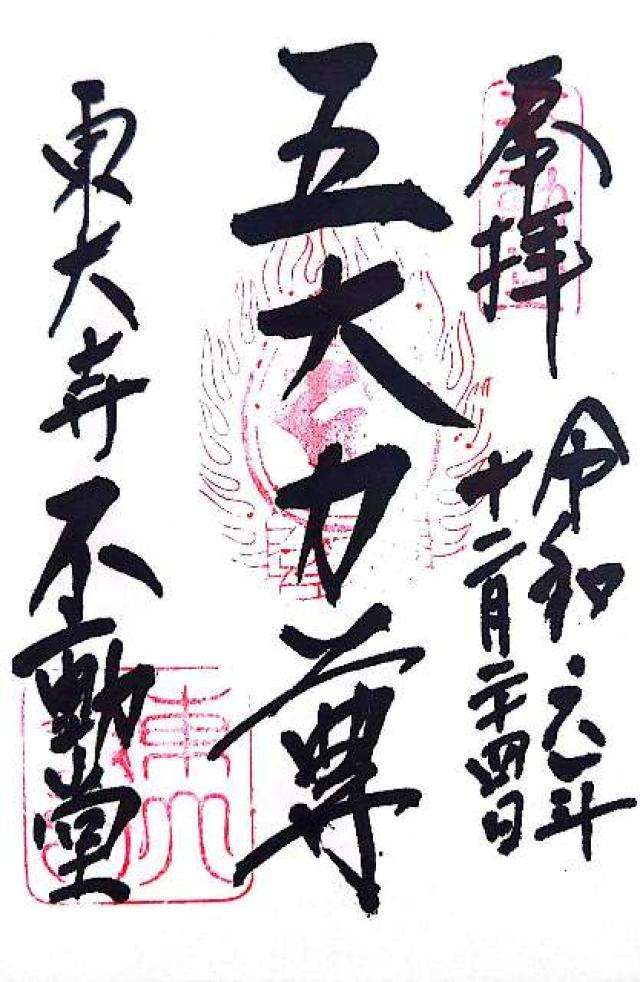 奉拝
令和元年
十二月二十四日
五大力尊
東大寺不動堂